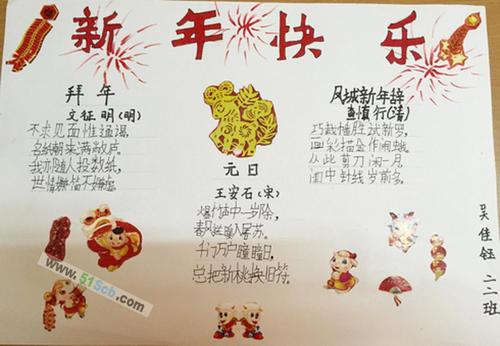 新年快乐
拜年
文征明(明)
不求见面惟通谒,
名纸朝来满敝庐。
我亦随人投数纸,
世情嫌简不嫌虚。
元日
王安石(宋)
爆竹声中一岁除,
春风送暖入屠苏。
千门万户曈曈日,
总把新桃换旧符。
凤城新年辞
查慎行(清)
巧裁幡胜试新罗,
画彩描金作闹蛾。
从此剪刀闲一月,
闺中针线岁前多。
吴佳钰
二二班
www.51Scb.com